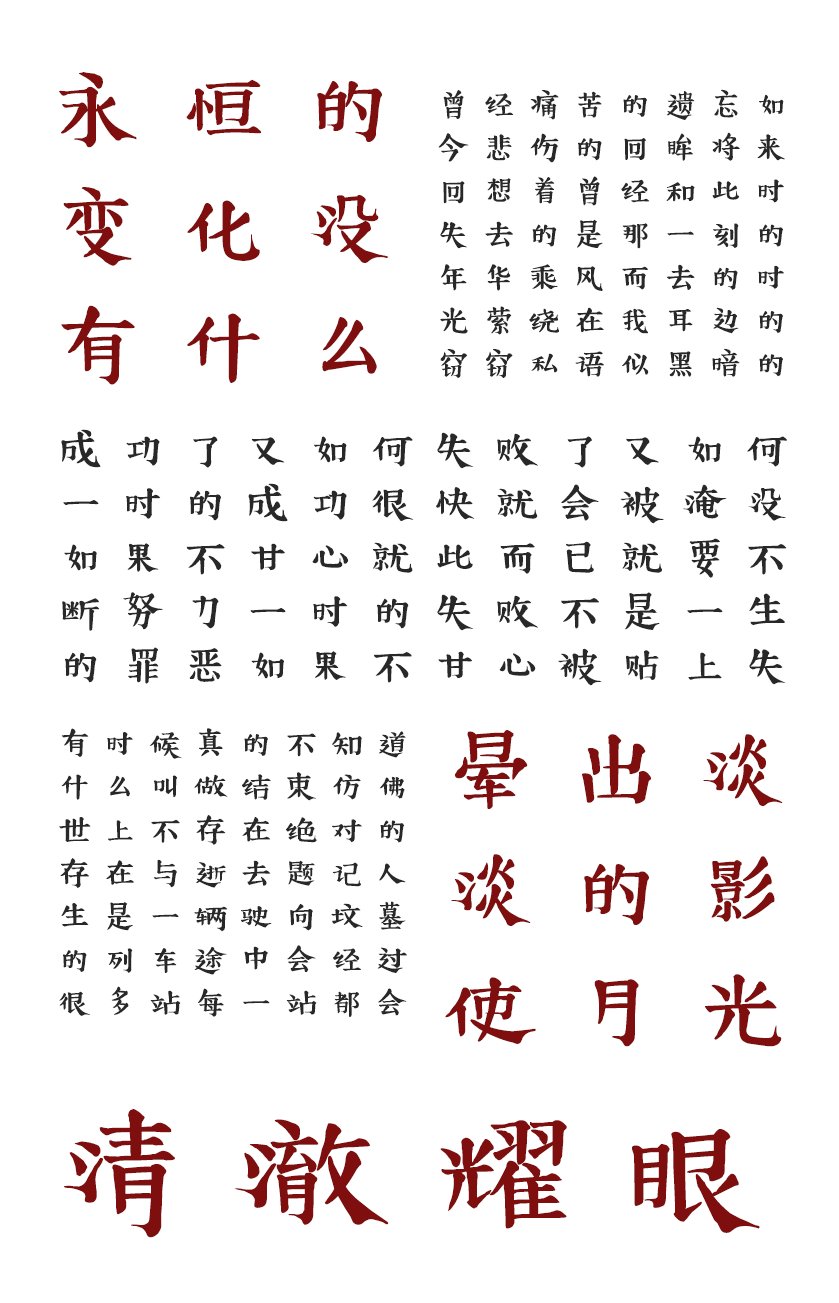 永恒的
变化没
有什么
曾经痛苦的遗忘如
今悲伤的回眸将来
回想着曾经和此时
失去的是那一刻的
年华乘风而去的时
光萦绕在我耳边的
窃窃私语似黑暗的
成功了又如何失败了又如何
一时的成功很快就会被淹没
如果不甘心就此而已就要不
断努力一时的失败不是一生
的罪恶如果不甘心被贴上失
有时候真的不知道
什么叫做结束仿佛
世上不存在绝对的
存在与逝去题记人
生是一辆驶向坟墓
的列车途中会经过
很多站每一站都会
晕出淡
淡的影
使月光
清澈耀眼